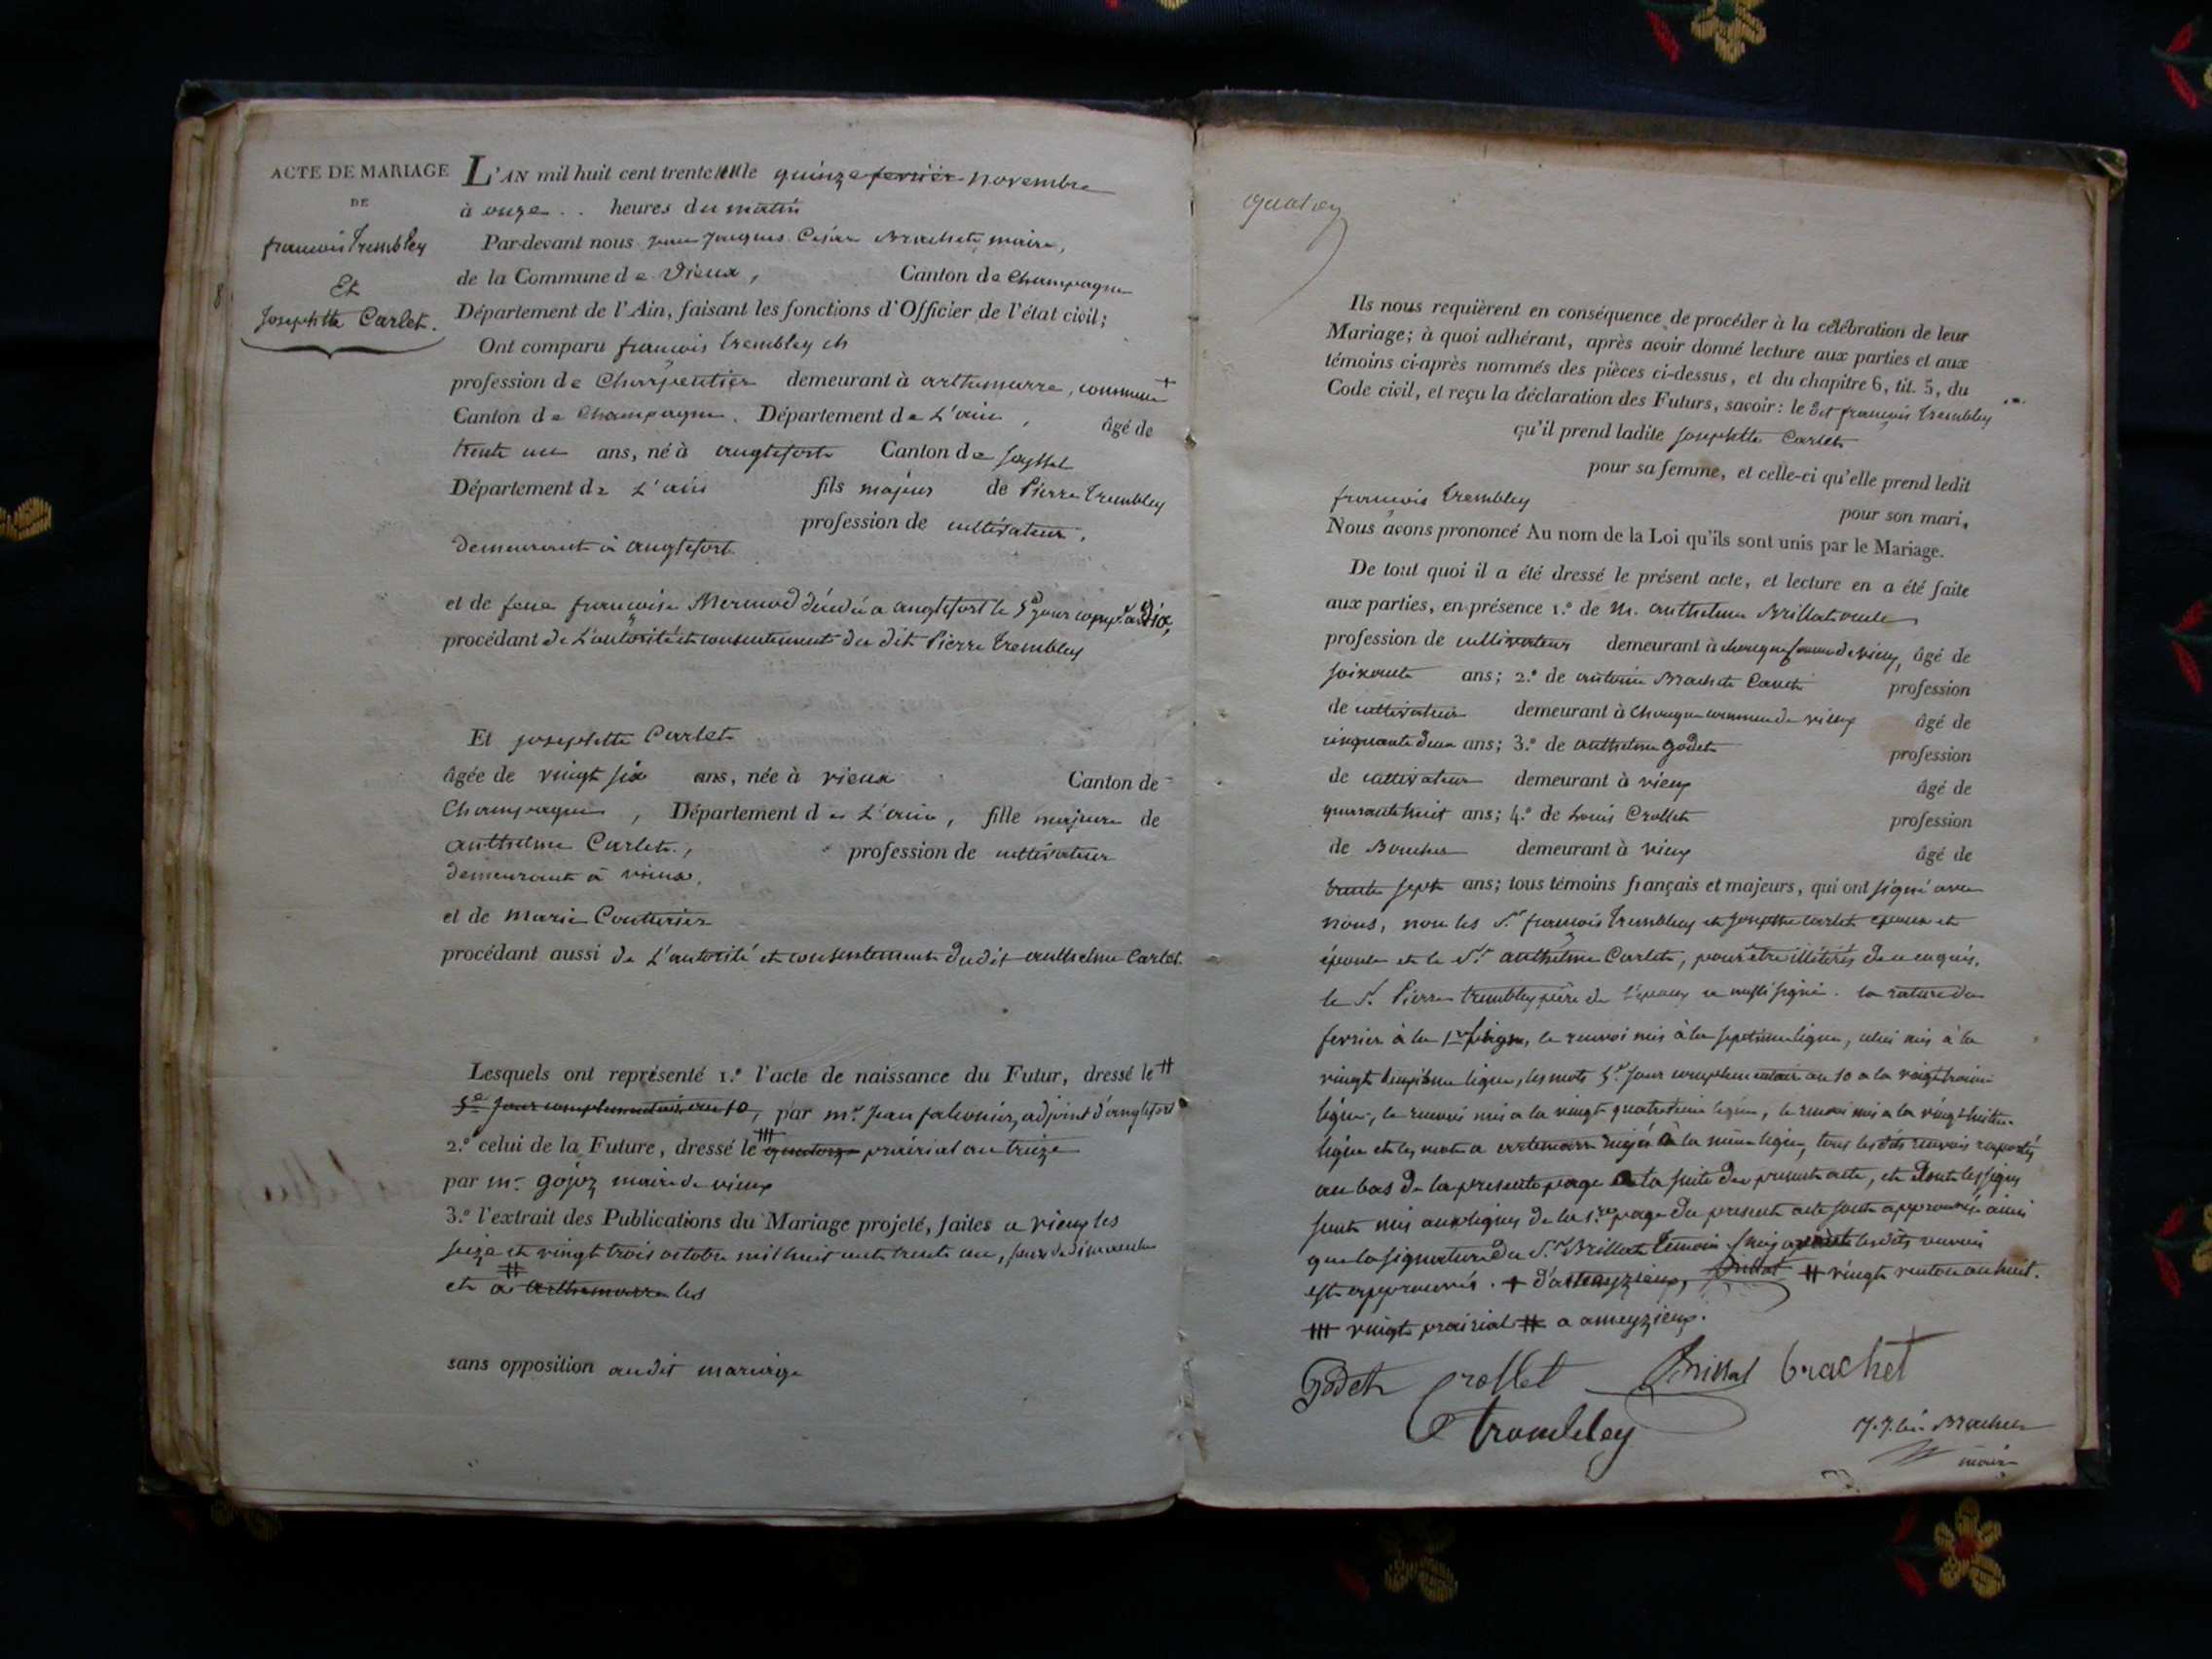 ACTE DE MARIAGE
DE
françois Trembley
Et
Josephtte Carlet.
8
L'AN mil huit cent trente un le quinze fevrier novembre
à onze .. heures du matin
Par-devant nous jean Jaques Cesar Brachet, maire,
de la Commune de Vieux, Canton de Champagne
Département de l'Ain, faisant les fonctions d'Officier de l'état civil;
Ont comparu françois Trembley
profession de Charpentier demeurant à arthemarre, commune +
Canton de Champagne. Département de L'ain, âgé de
trente un ans, né à anglefort Canton de seyssel
Département de L'ain fils majeur de Pierre Trembley
profession de cultivateur,
demeurant à anglefort
et de feue françoise Mermod décédée a anglefort le 5e jour
procédant de L'autorité et consentement du dit Pierre Trembley
Et josephtte Carlet
âgée de vingt six ans, née à vieux Canton de
Champagne, Département de L'ain, fille majeure de
anthelme Carlet, profession de cultivateur
demeurant à vieux,
et de Marie Couturier
procédant aussi de L'autorité et consentement dudit anthelme Carlet.
Lesquels ont représenté 1.° l'acte de naissance du Futur, dressé le #
5e jour complementaire an 10, par mr. Jean falconier, adjoint d'anglefort
2.° celui de la Future, dressé le quatorze prairial an treize
par mr. gojoz maire de vieux
3.° l'extrait des Publications du Mariage projeté, faites a vieux les
seize et vingt trois octobre mil huit cent trente un, jours de dimanche
et a arthemarre les
sans opposition audit mariage
Ils nous requièrent en conséquence de procéder à la célébration de leur
Mariage; à quoi adhérant, après avoir donné lecture aux parties et aux
témoins ci-après nommés des pièces ci-dessus, et du chapitre 6, tit. 5, du
Code civil, et reçu la déclaration des Futurs, savoir: le dit françois Trembley
qu'il prend ladite josephtte Carlet
pour sa femme, et celle-ci qu'elle prend ledit
françois Trembley pour son mari,
Nous avons prononcé Au nom de la Loi qu'ils sont unis par le Mariage.
De tout quoi il a été dressé le présent acte, et lecture en a été faite
aux parties, en présence 1.° de m. anthelme Brillat
profession de cultivateur demeurant à de vieux, âgé de
soixante ans; 2.° de antoine Brachet profession
de cultivateur demeurant à commune de vieux âgé de
cinquante deux ans; 3.° de anthelme godet profession
de cultivateur demeurant à vieux âgé de
quarante huit ans; 4.° de Louis Crollet profession
de Boucher demeurant à vieux âgé de
trente sept ans; tous témoins français et majeurs, qui ont signé avec
nous, non les Sr. françois Trembley et josephtte Carlet epoux et
épouse et le Sr. anthelme Carlet, pour être illitérés de ce enquis,
le Sr. Pierre trembley père de l'epoux a aussi signé. la rature de
fevrier à la 1re ligne, le renvoi mis à la septieme ligne, celui mis à la
vingt ligne, les mots 5e. jour complementaire an 10 a la
ligne, le renvoi mis a la vingt quatrieme ligne, le renvoi mis a la vingt huitieme
ligne et les mots a artemare à la même ligne, tous lesdits renvois raportés
au bas de la presente page a la suite du present acte, et dont les signes
sont mis aux lignes de la 1re page du present acte sont approuvés ainsi
que la signature du Sr. Brillat temoin lesdits renvois
est approuvés. + d'ameyzieux, Brillat # vingt ventose an huit.
vingt prairial # a ameyzieux.
Godet Crollet Brillat brachet
trombley
J. J. Brachet
maire